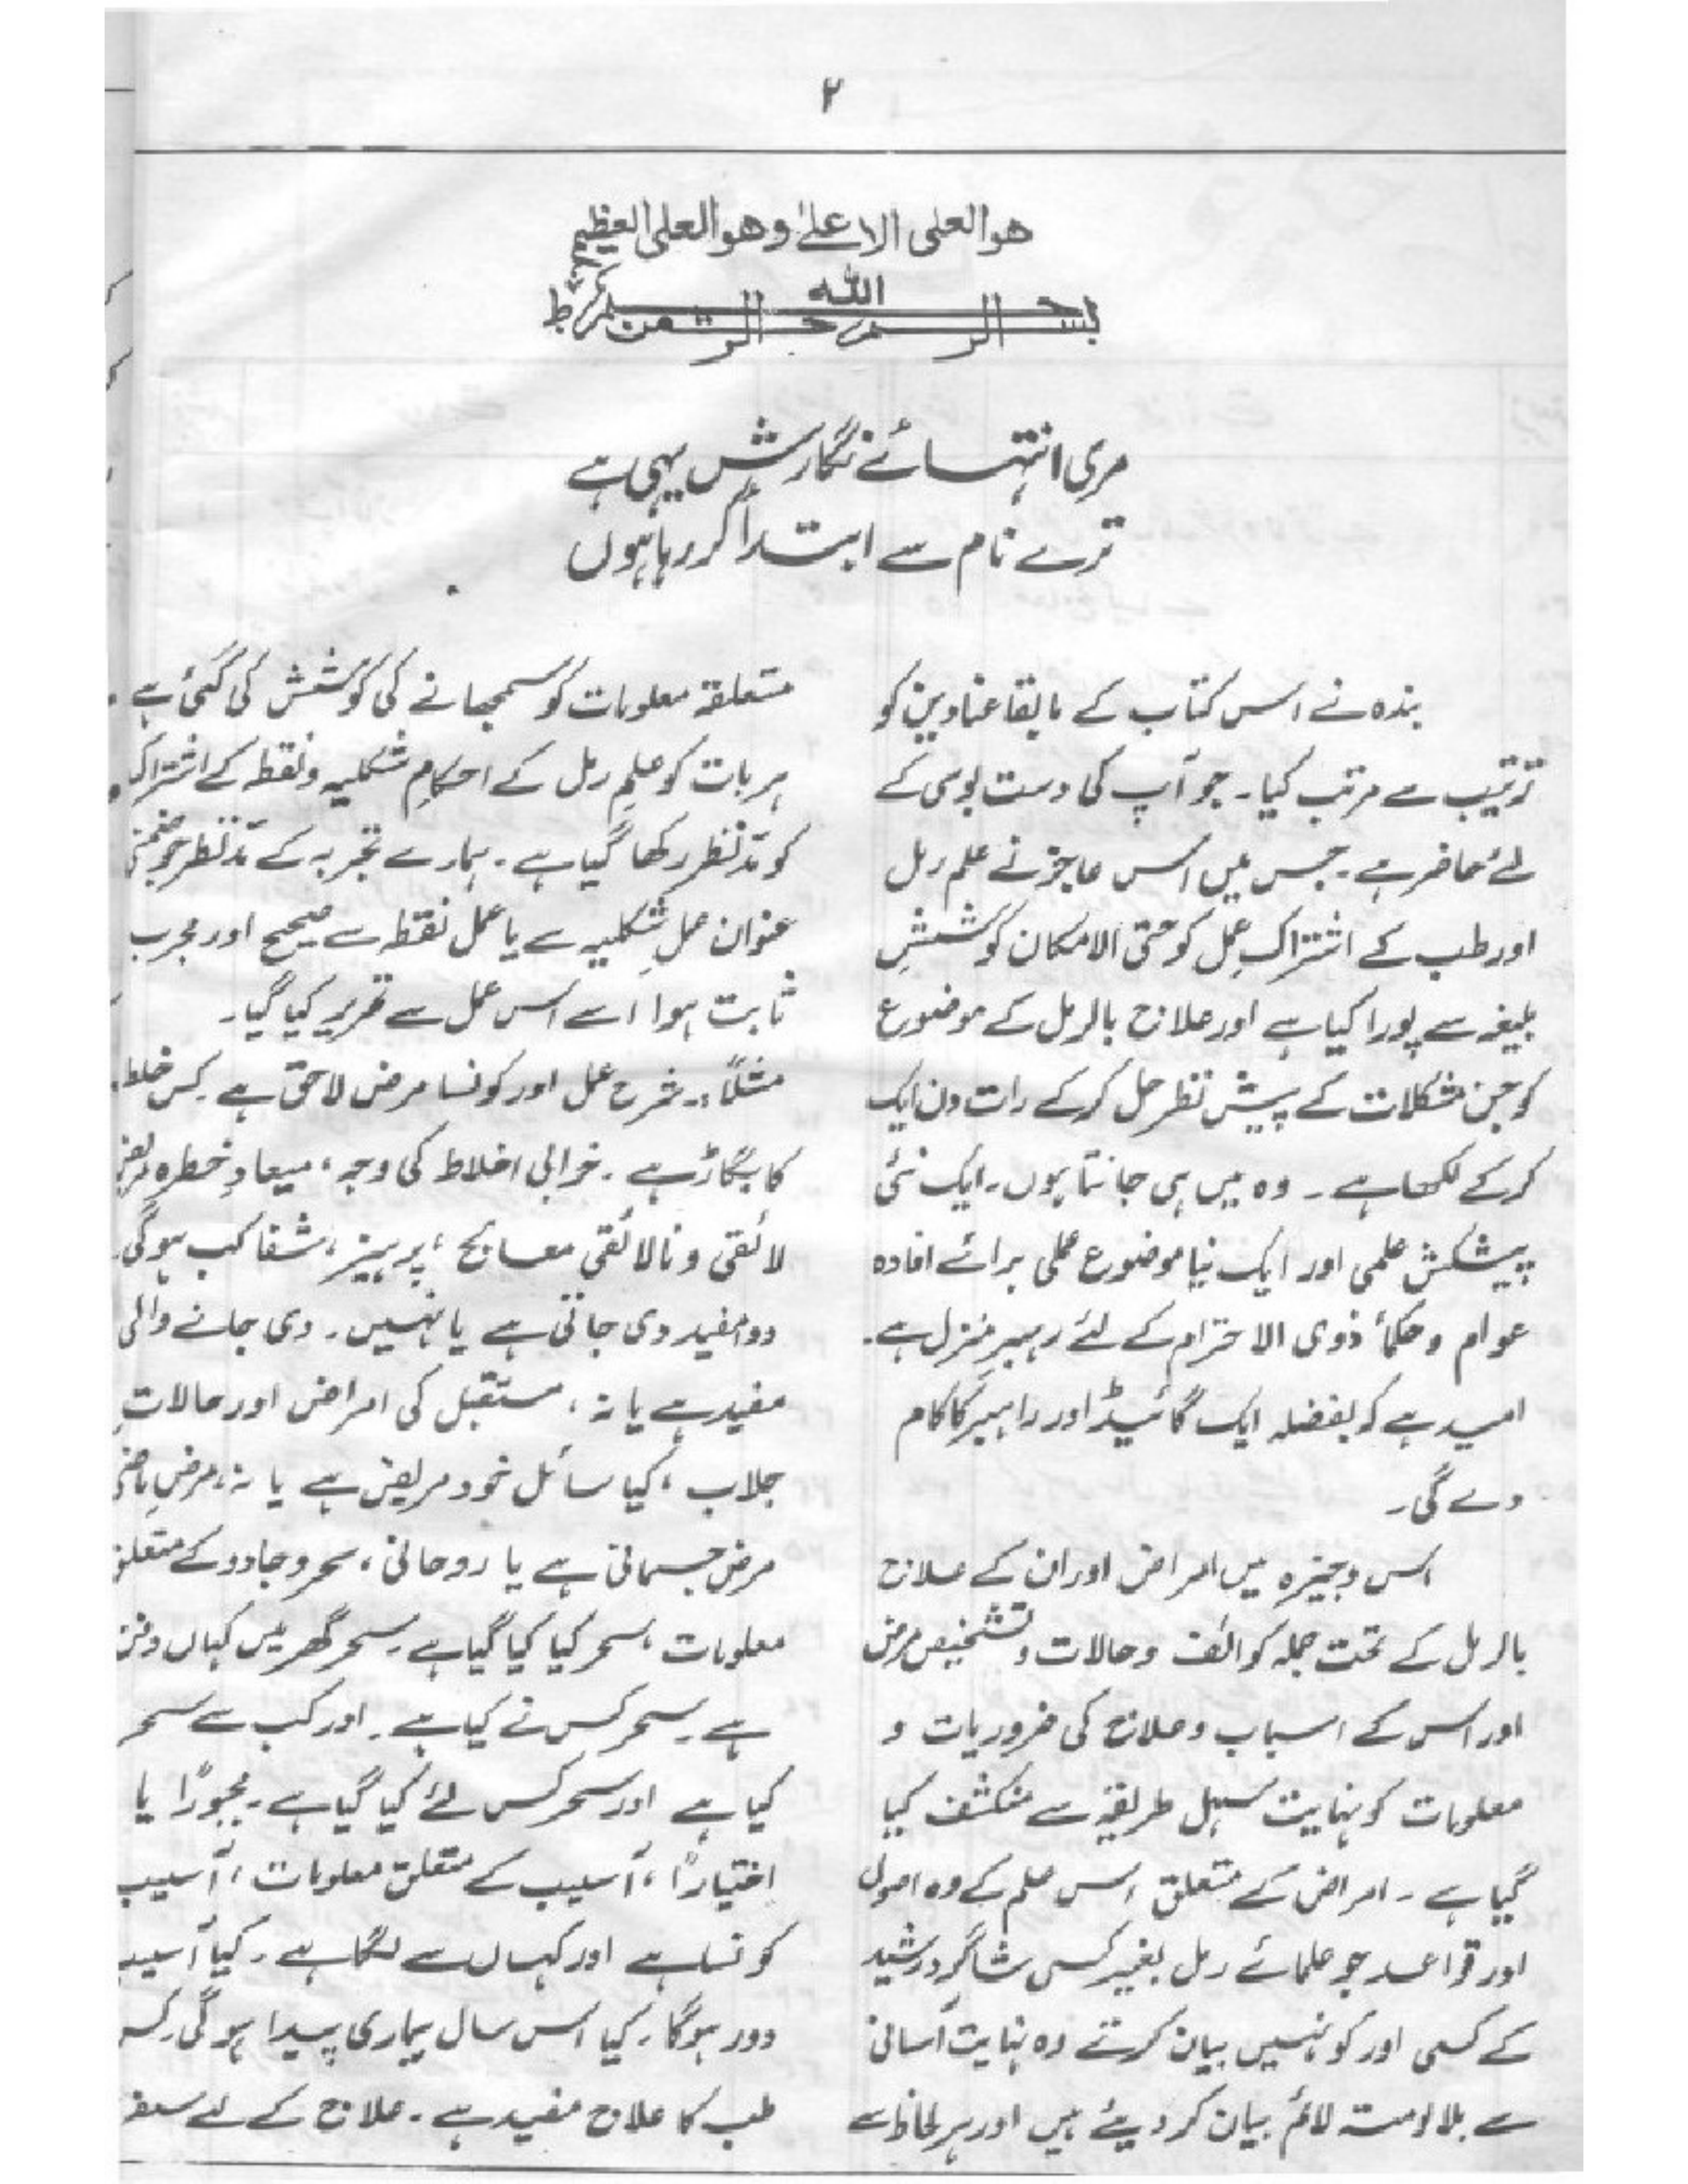 ۲
هو العلی الاعلےٰ وهو العلی العظیم
بسم الله الرحمن الرحیم ط
مری انتہائے نگارش یہی ہے
ترے نام سے ابتدأ کر رہا ہوں
بندہ نے اس کتاب کے مابقا عناوین کو
ترتیب سے مرتب کیا۔ جو آپ کی دست بوسی کے
لئے حاضر ہے۔ جس میں اس عاجز نے علم رمل
اور طب کے اشتراکِ عمل کو حتیٰ الامکان کوششِ
بلیغہ سے پورا کیا ہے اور علاج بالرمل کے موضوع
کو جن مشکلات کے پیش نظر حل کرکے رات دن ایک
کرکے لکھا ہے۔ وہ میں ہی جانتا ہوں۔ ایک نئی
پیشکش علمی اور ایک نیا موضوع عملی برائے افادہ
عوام و حکمأ ذوی الاحترام کے لئے رہبرِ منزل ہے۔
امید ہے کہ بفضلہ ایک گائیڈ اور راہبر کا کام
دے گی۔
اس وجیزہ میں امراض اور ان کے علاج
بالرمل کے تحت جملہ کوائف و حالات و تشخیص مرض
اور اس کے اسباب و علاج کی ضروریات و
معلومات کو نہایت سہل طریقہ سے منکشف کیا
گیا ہے۔ امراض کے متعلق اس علم کے وہ اصول
اور قواعد جو علمائے رمل بغیر کسی شاگردِ رشید
کے کسی اور کو نہیں بیان کرتے وہ نہایت آسانی
سے بلا لومتہ لائم بیان کر دیئے ہیں اور ہر لحاظ سے
متعلقہ معلومات کو سمجھانے کی کوشش کی گئی ہے۔
ہر بات کو علمِ رمل کے احکامِ شکلیہ و نقطہ کے اشتراک
کو مدّنظر رکھا گیا ہے۔ ہمارے تجربہ کے مدّنظر جو ضمنی
عنوان عملِ شکلیہ سے یا عمل نقطہ سے صحیح اور مجرب
ثابت ہوا اسے اس عمل سے تحریر کیا گیا۔
مثلاً:۔ شرح عمل اور کونسا مرض لاحق ہے۔ کس خلط
کا بگاڑ ہے۔ خرابی اخلاط کی وجہ، میعادِ خطرہ مریض
لائقی و نالائقی معالج، پرہیز، شفا کب ہوگی۔
دوا مفید دی جاتی ہے یا نہیں۔ دی جانے والی
مفید ہے یا نہ، مستقبل کی امراض اور حالاتِ
جلاب، کیا سائل خود مریض ہے یا نہ، مرض
مرض جسمانی ہے یا روحانی، سحر و جادو کے متعلق
معلومات، سحر کیا کیا گیا ہے۔ سحر گھر میں کہاں دفن
ہے۔ سحر کس نے کیا ہے۔ اور کب سے سحر
کیا ہے اور سحر کس لئے کیا گیا ہے۔ مجبوراً یا
اختیاراً، آسیب کے متعلق معلومات، آسیب
کونسا ہے اور کہاں سے لگا ہے۔ کیا آسیب
دور ہوگا۔ کیا اس سال بیماری پیدا ہوگی۔ کس
طب کا علاج مفید ہے۔ علاج کے لئے سفر